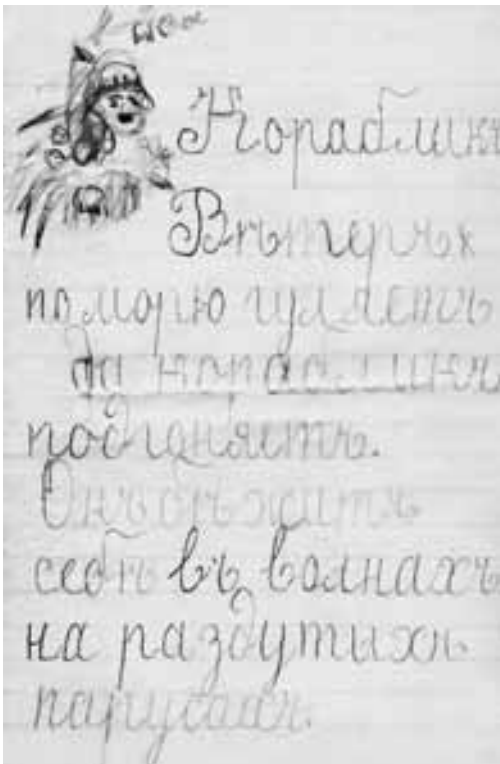 Корабликъ
Вѣтеръ
по морю гуляетъ
да корабликъ
подгоняетъ.
Онъ бѣжитъ
себѣ въ волнахъ
на раздутыхъ
парусахъ.